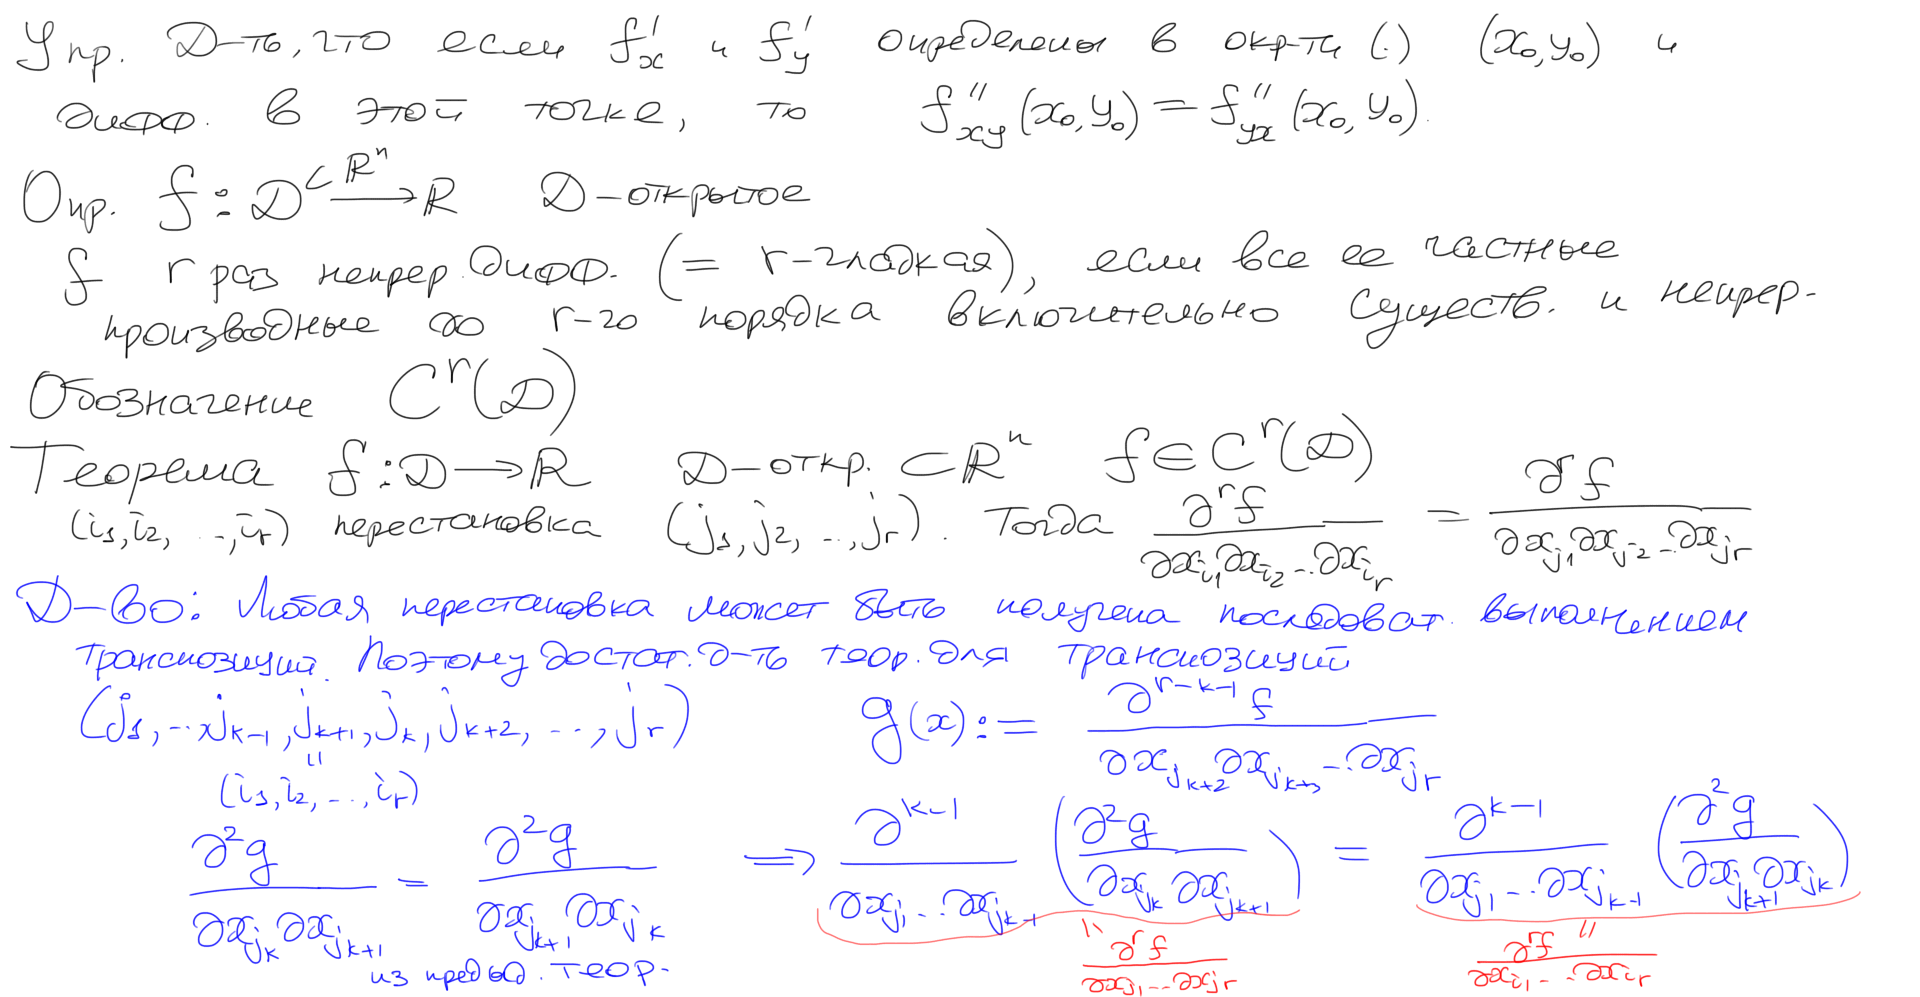 Упр. Д-ть, что если f'_x и f'_y определены в окр-ти (·) (x_0, y_0) и
дифф. в этой точке, то f''_{xy}(x_0, y_0) = f''_{yx}(x_0, y_0).
Опр. f : D ⊂ ℝ^n ⟶ ℝ D – открытое
f r раз непрер. дифф. (= r-гладкая), если все ее частные
производные до r-го порядка включительно существ. и непрер.
Обозначение C^r(D)
Теорема f : D ⟶ ℝ D – откр. ⊂ ℝ^n f ∈ C^r(D)
(i_1, i_2, ..., i_r) перестановка (j_1, j_2, ..., j_r). Тогда ∂^r f / ∂x_{i_1} ∂x_{i_2} ... ∂x_{i_r} = ∂^r f / ∂x_{j_1} ∂x_{j_2} ... ∂x_{j_r}
Д-во: Любая перестановка может быть получена последоват. выполнением
транспозиций. Поэтому достат. д-ть теор. для транспозиций
(j_1, ..., j_{k-1}, j_{k+1}, j_k, j_{k+2}, ..., j_r) g(x) := ∂^{r-k-1} f / ∂x_{j_{k+2}} ∂x_{j_{k+3}} ... ∂x_{j_r}
=
(i_1, i_2, ..., i_r)
∂^2 g / ∂x_{j_k} ∂x_{j_{k+1}} = ∂^2 g / ∂x_{j_{k+1}} ∂x_{j_k} ⟹ ∂^{k-1} / ∂x_{j_1} ... ∂x_{j_{k-1}} (∂^2 g / ∂x_{j_k} ∂x_{j_{k+1}}) = ∂^{k-1} / ∂x_{j_1} ... ∂x_{j_{k-1}} (∂^2 g / ∂x_{j_{k+1}} ∂x_{j_k})
из предыд. теор.
= ∂^r f / ∂x_{j_1} ... ∂x_{j_r}
= ∂^r f / ∂x_{i_1} ... ∂x_{i_r}